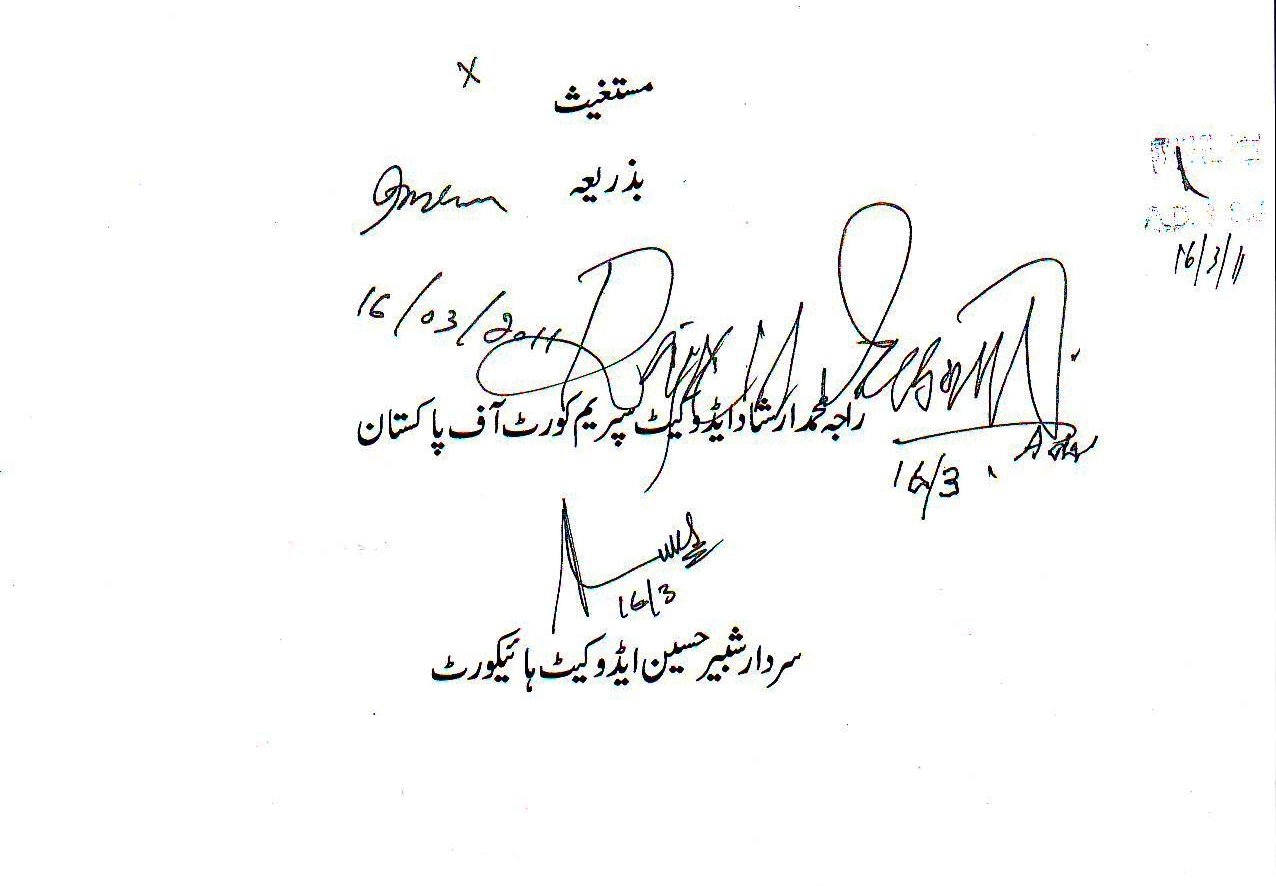 X
مستغیث
بذریعہ
16/03/2011
16/3/11
راجہ محمد ارشاد ایڈووکیٹ سپریم کورٹ آف پاکستان
16/3
16/3
سردار شبیر حسین ایڈووکیٹ ہائیکورٹ